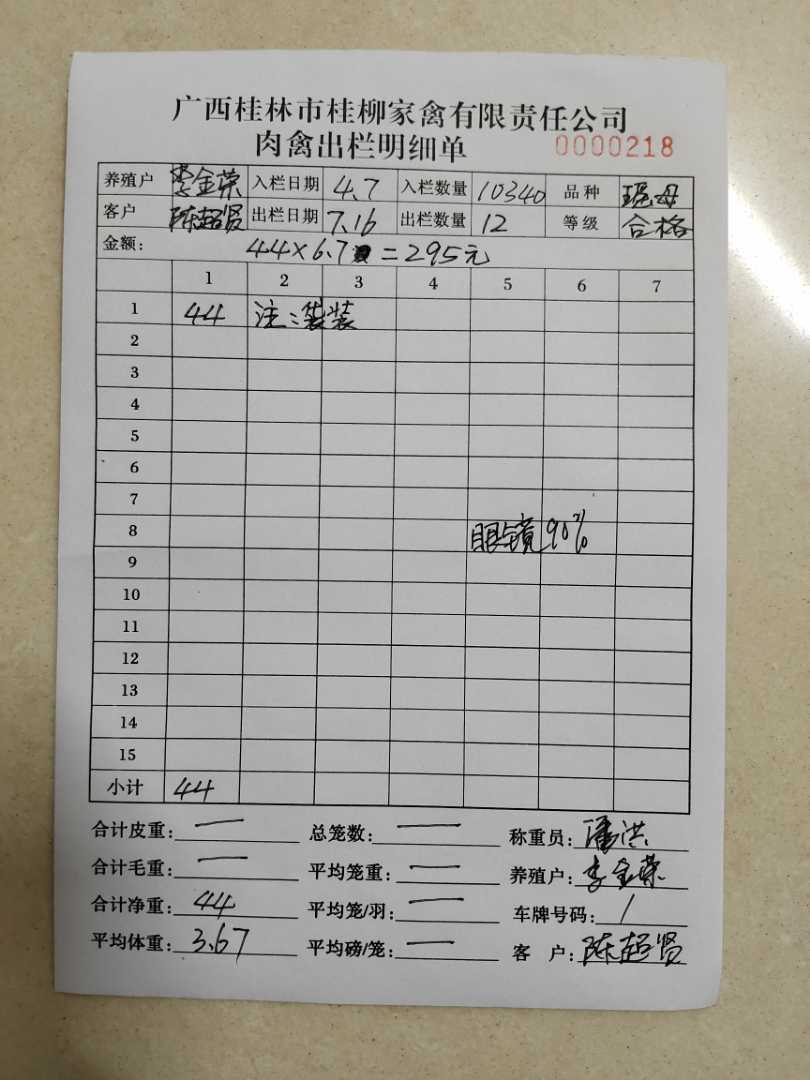 广西桂林市桂柳家禽有限责任公司
肉禽出栏明细单 0000218
养殖户 李金荣 入栏日期 4.7 入栏数量 10340 品种 瑶母
客户 陈超贤 出栏日期 7.16 出栏数量 12 等级 合格
金额: 44×6.7 =295元
1 2 3 4 5 6 7
1 44 注:袋装
2
3
4
5
6
7
8 眼镜90%
9
10
11
12
13
14
15
小计 44
合计皮重: 一 总笼数: 一 称重员: 潘洪
合计毛重: 一 平均笼重: 一 养殖户: 李金荣
合计净重: 44 平均笼/羽: 一 车牌号码: /
平均体重: 3.67 平均磅/笼: 一 客 户: 陈超贤